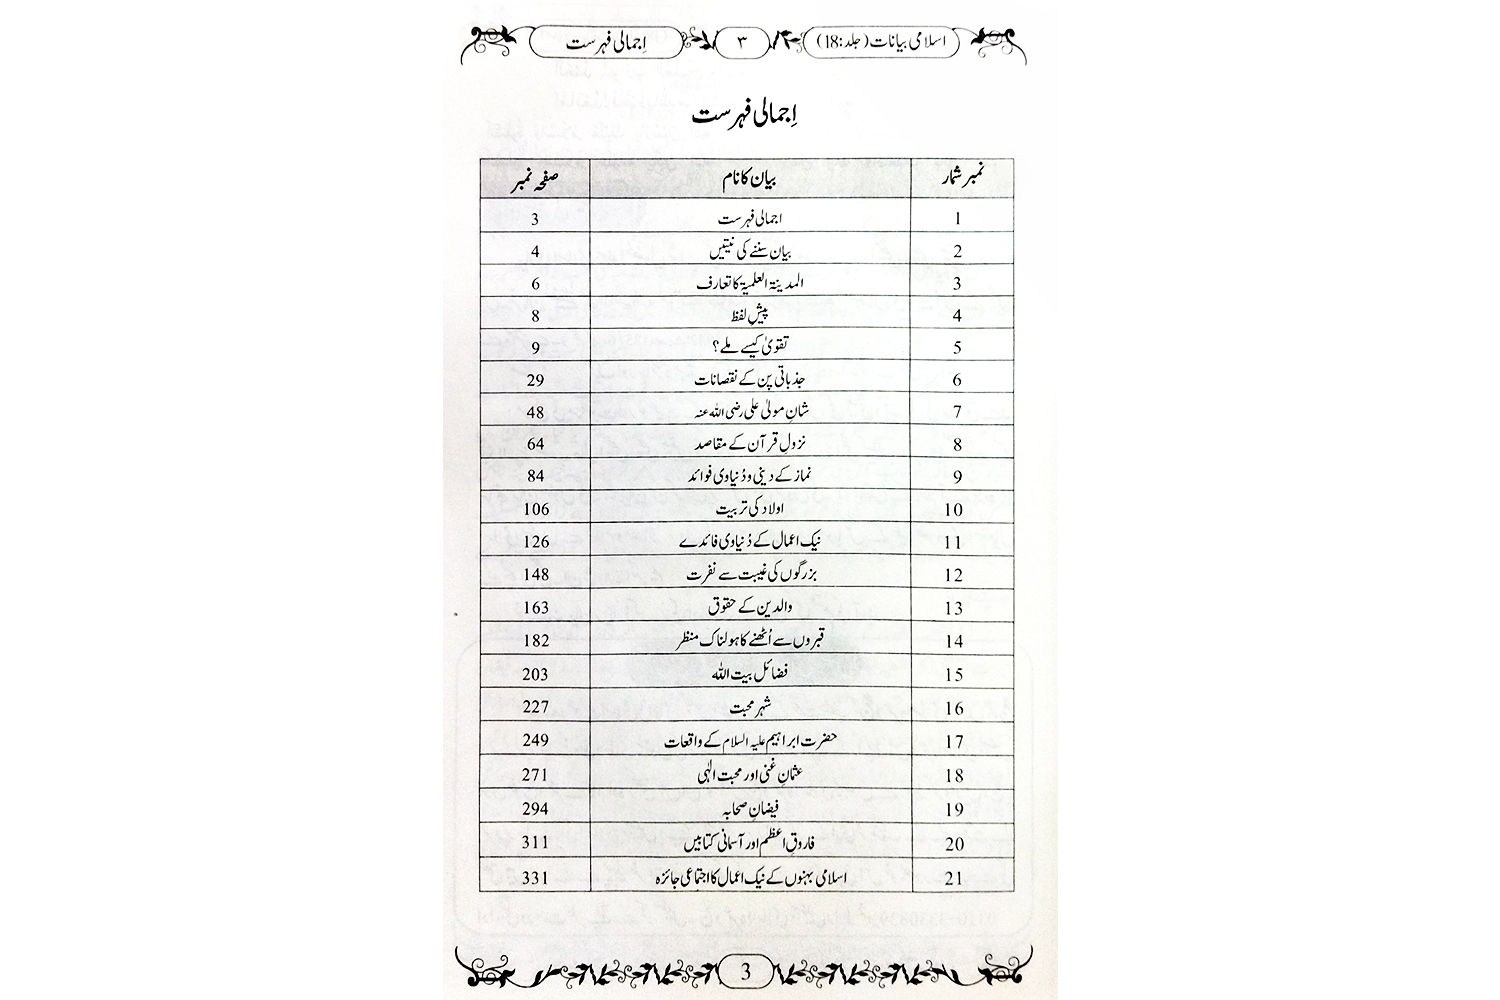 اسلامی بیانات (جلد:18) ۳ اِجمالی فہرست
اِجمالی فہرست
نمبر شمار بیان کا نام صفحہ نمبر
1 اجمالی فہرست 3
2 بیان سننے کی نیتیں 4
3 المدینۃ العلمیۃ کا تعارف 6
4 پیشِ لفظ 8
5 تقویٰ کیسے ملے؟ 9
6 جذباتی پن کے نقصانات 29
7 شانِ مولیٰ علی رضی اللہ عنہ 48
8 نزولِ قرآن کے مقاصد 64
9 نماز کے دینی و دُنیاوی فوائد 84
10 اولاد کی تربیت 106
11 نیک اعمال کے دُنیاوی فائدے 126
12 بزرگوں کی غیبت سے نفرت 148
13 والدین کے حقوق 163
14 قبروں سے اُٹھنے کا ہولناک منظر 182
15 فضائل بیت اللہ 203
16 شہر محبت 227
17 حضرت ابراہیم علیہ السلام کے واقعات 249
18 عثمانِ غنی اور محبت الٰہی 271
19 فیضانِ صحابہ 294
20 فاروقِ اعظم اور آسمانی کتابیں 311
21 اسلامی بہنوں کے نیک اعمال کا اجتماعی جائزہ 331
3